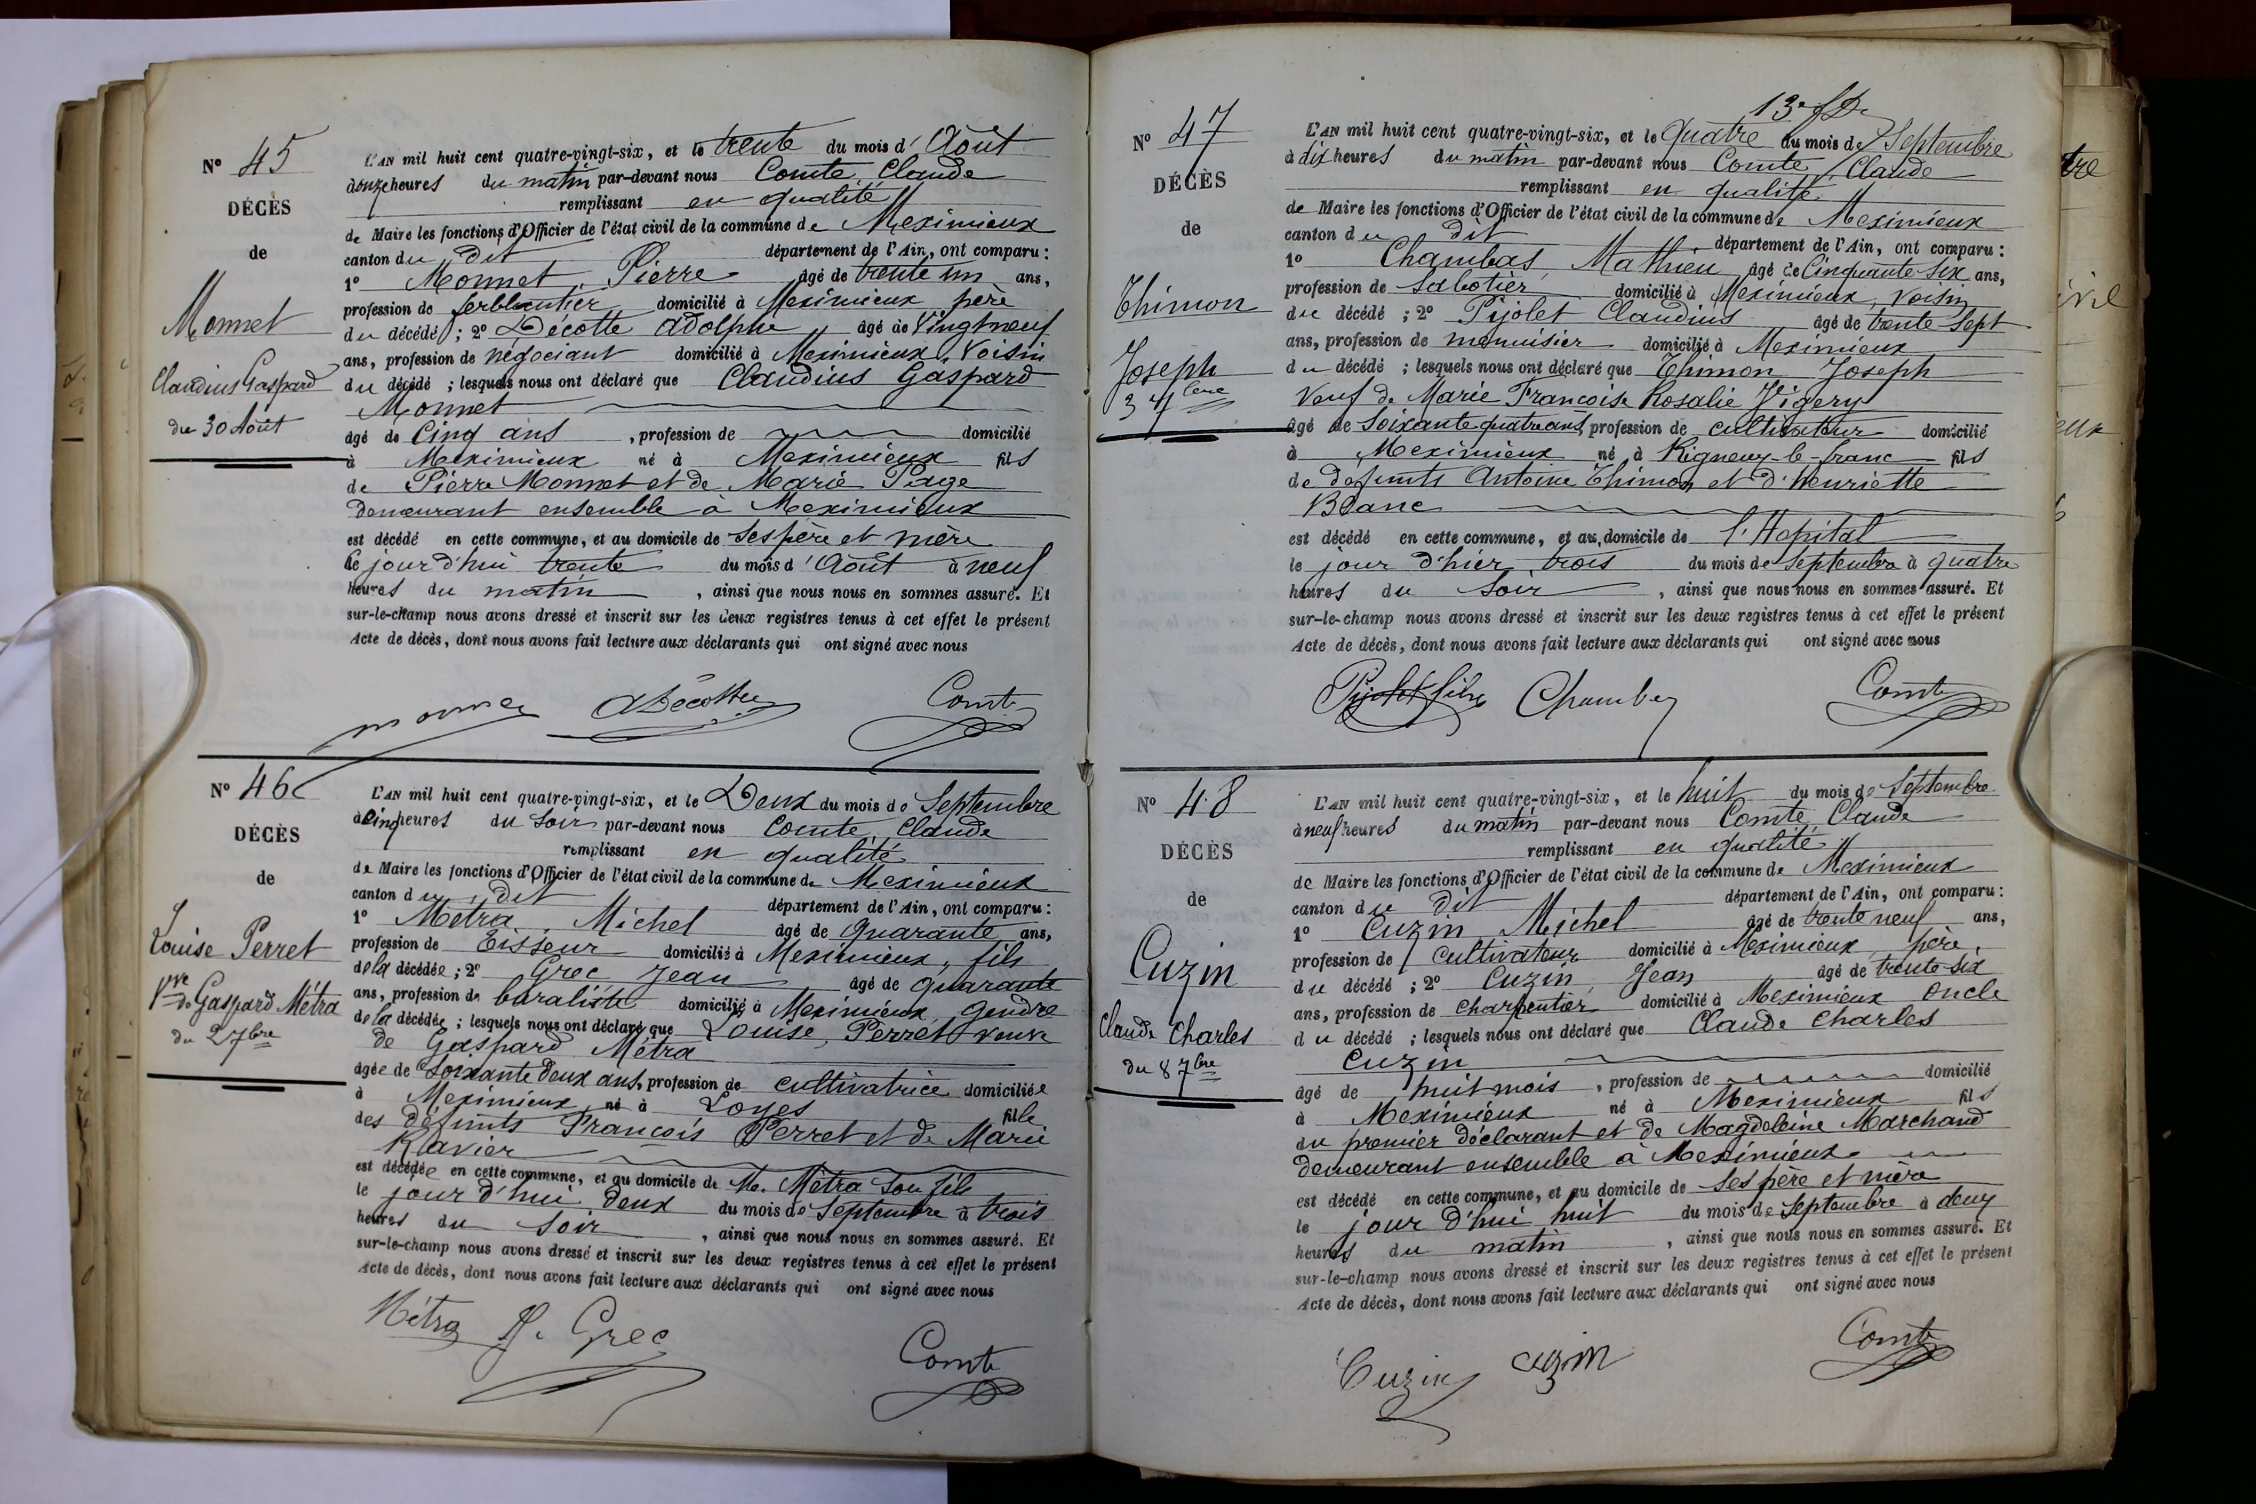 N° 45
DÉCÈS
de
Monnet
Claudius Gaspard
du 30 Août
L'AN mil huit cent quatre-vingt-six, et le trente du mois d'Août
à onze heures du matin par-devant nous Comte, Claude
remplissant en qualité
de Maire les fonctions d'Officier de l'état civil de la commune de Meximieux
canton du dit département de l'Ain, ont comparu :
1° Monnet, Pierre âgé de trente un ans,
profession de ferblantier domicilié à Meximieux, père
du décédé ; 2° Décotte Adolphe âgé de Vingt neuf
ans, profession de négociant domicilié à Meximieux, Voisin
du décédé ; lesquels nous ont déclaré que Claudius Gaspard
Monnet
âgé de Cinq ans , profession de domicilié
à Meximieux né à Meximieux fils
de Pierre Monnet et de Marie Page
demeurant ensemble à Meximieux
est décédé en cette commune, et au domicile de ses père et mère
le jour d'hui trente du mois d'Août à neuf
heures du matin , ainsi que nous nous en sommes assuré. Et
sur-le-champ nous avons dressé et inscrit sur les deux registres tenus à cet effet le présent
Acte de décès, dont nous avons fait lecture aux déclarants qui ont signé avec nous
monnet ADécotte Comte
N° 46
DÉCÈS
de
Louise Perret
Vve de Gaspard Métra
du 2 7bre
L'AN mil huit cent quatre-vingt-six, et le Deux du mois de Septembre
à Cinq heures du Soir par-devant nous Comte, Claude
remplissant en qualité
de Maire les fonctions d'Officier de l'état civil de la commune de Meximieux
canton du dit département de l'Ain, ont comparu :
1° Métra, Michel âgé de quarante ans,
profession de Tisseur domicilié à Meximieux, fils
de la décédée ; 2° Grec Jean âgé de quarante
ans, profession de buraliste domicilié à Meximieux, Gendre
de la décédée ; lesquels nous ont déclaré que Louise, Perret veuve
de Gaspard Métra
âgée de Soixante deux ans, profession de cultivatrice domiciliée
à Meximieux né à Loyes fille
des défunts François Perret et de Marie
Ravier
est décédée en cette commune, et au domicile de M. Métra son fils
le jour d'hui deux du mois de Septembre à trois
heures du Soir , ainsi que nous nous en sommes assuré. Et
sur-le-champ nous avons dressé et inscrit sur les deux registres tenus à cet effet le présent
Acte de décès, dont nous avons fait lecture aux déclarants qui ont signé avec nous
Métra J. Grec Comte
13e
N° 47
DÉCÈS
de
Thimon
Joseph
3 7bre
L'AN mil huit cent quatre-vingt-six, et le quatre du mois de Septembre
à dix heures du matin par-devant nous Comte, Claude
remplissant en qualité
de Maire les fonctions d'Officier de l'état civil de la commune de Meximieux
canton du dit département de l'Ain, ont comparu :
1° Chambas, Mathieu âgé de Cinquante Six ans,
profession de Sabotier domicilié à Meximieux, Voisin
du décédé ; 2° Pijolet Claudius âgé de trente Sept
ans, profession de menuisier domicilié à Meximieux
du décédé ; lesquels nous ont déclaré que Thimon Joseph
Veuf de Marie Françoise Rosalie Vigery
âgé de Soixante quatre ans, profession de cultivateur domicilié
à Meximieux né à Rigneux-le-franc fils
de défunts Antoine Thimon et d'Henriette
Blanc
est décédé en cette commune, et au domicile de l'Hopital
le jour d'hier trois du mois de Septembre à quatre
heures du Soir , ainsi que nous nous en sommes assuré. Et
sur-le-champ nous avons dressé et inscrit sur les deux registres tenus à cet effet le présent
Acte de décès, dont nous avons fait lecture aux déclarants qui ont signé avec nous
Pijolet Chambas Comte
N° 48
DÉCÈS
de
Cuzin
Claude Charles
du 8 7bre
L'AN mil huit cent quatre-vingt-six, et le huit du mois de Septembre
à neuf heures du matin par-devant nous Comte, Claude
remplissant en qualité
de Maire les fonctions d'Officier de l'état civil de la commune de Meximieux
canton du dit département de l'Ain, ont comparu :
1° Cuzin, Michel âgé de trente neuf ans,
profession de cultivateur domicilié à Meximieux, père,
du décédé ; 2° Cuzin, Jean âgé de trente Six
ans, profession de charpentier domicilié à Meximieux oncle
du décédé ; lesquels nous ont déclaré que Claude Charles
Cuzin
âgé de huit mois , profession de domicilié
à Meximieux né à Meximieux fils
du premier déclarant et de Magdeleine Marchand
demeurant ensemble à Meximieux
est décédé en cette commune, et au domicile de ses père et mère
le jour d'hui huit du mois de Septembre à deux
heures du matin , ainsi que nous nous en sommes assuré. Et
sur-le-champ nous avons dressé et inscrit sur les deux registres tenus à cet effet le présent
Acte de décès, dont nous avons fait lecture aux déclarants qui ont signé avec nous
Cuzin cuzin Comte